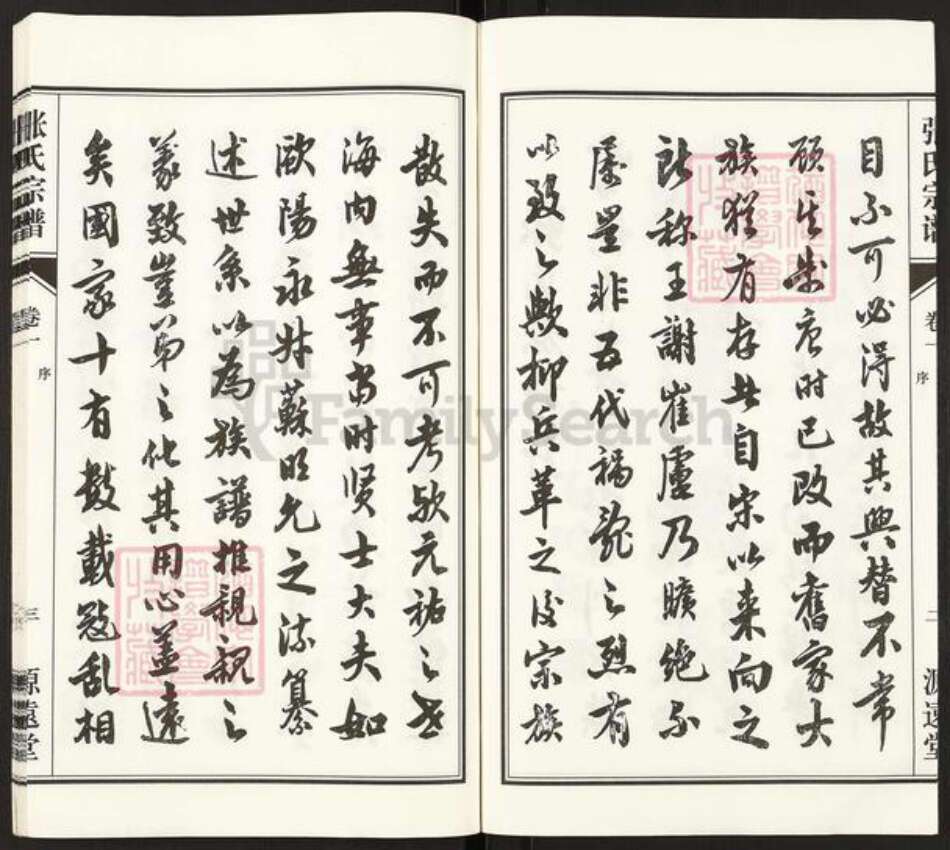 张氏宗谱
卷一
序
二
源远堂
目不可必得故其興替不常
顧其步唐时已改而舊家大
族猶有存此自宋以来向之
所称王謝崔盧乃曠絕而
屡量非五代禍亂之烈有
以致之歟抑兵革之後宗族
散失而不可考欤元祐之世
海内無事当时贤士大夫如
歐陽永叔蘇明允之流纂
述世系以為族譜推親親之
義致孝弟之化其用心盖遠
矣國家十有数載寇乱相
张氏宗谱
卷一
序
三
源遠堂
FamilySearch